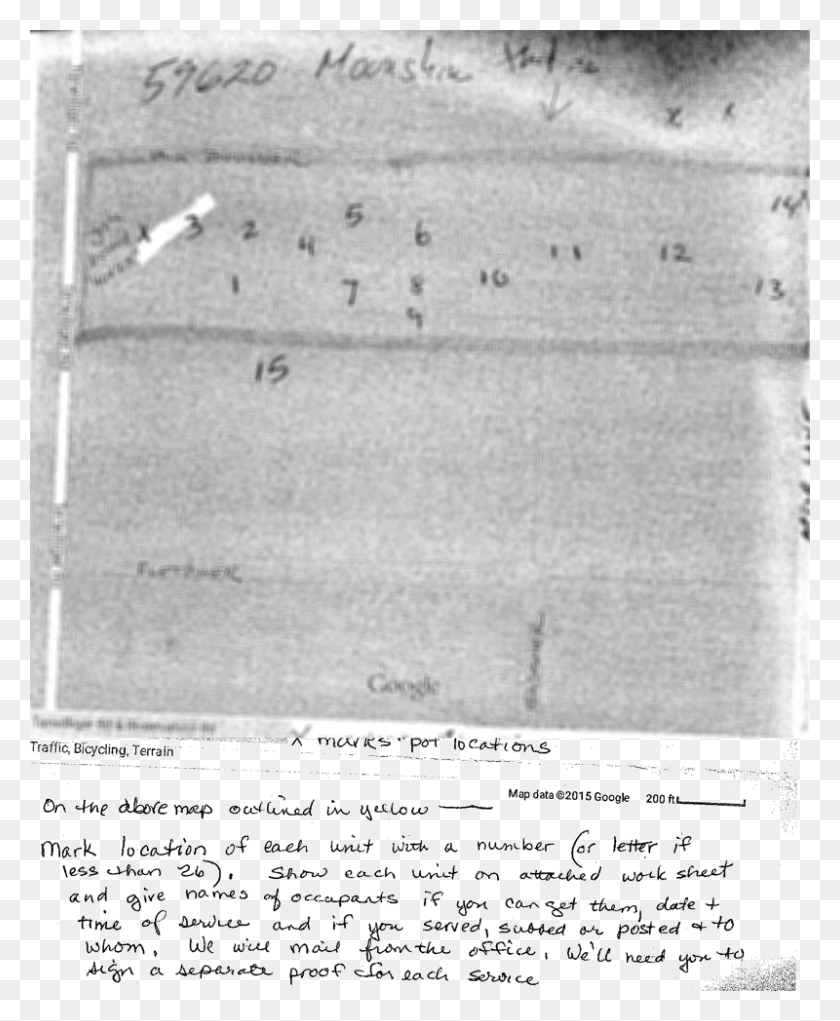 59620 Moonshine
x x
14
5
3 2 6
4 11 12
1 7 8 10 13
9
15
Google
X marks pot locations
Traffic, Bicycling, Terrain
Map data ©2015 Google 200 ft
On the above map outlined in yellow
Mark location of each unit with a number (or letter if
less than 26). Show each unit on attached work sheet
and give names of occupants if you can get them, date +
time of service and if you served, subbed or posted + to
whom. We will mail from the office. We'll need you to
sign a separate proof for each service